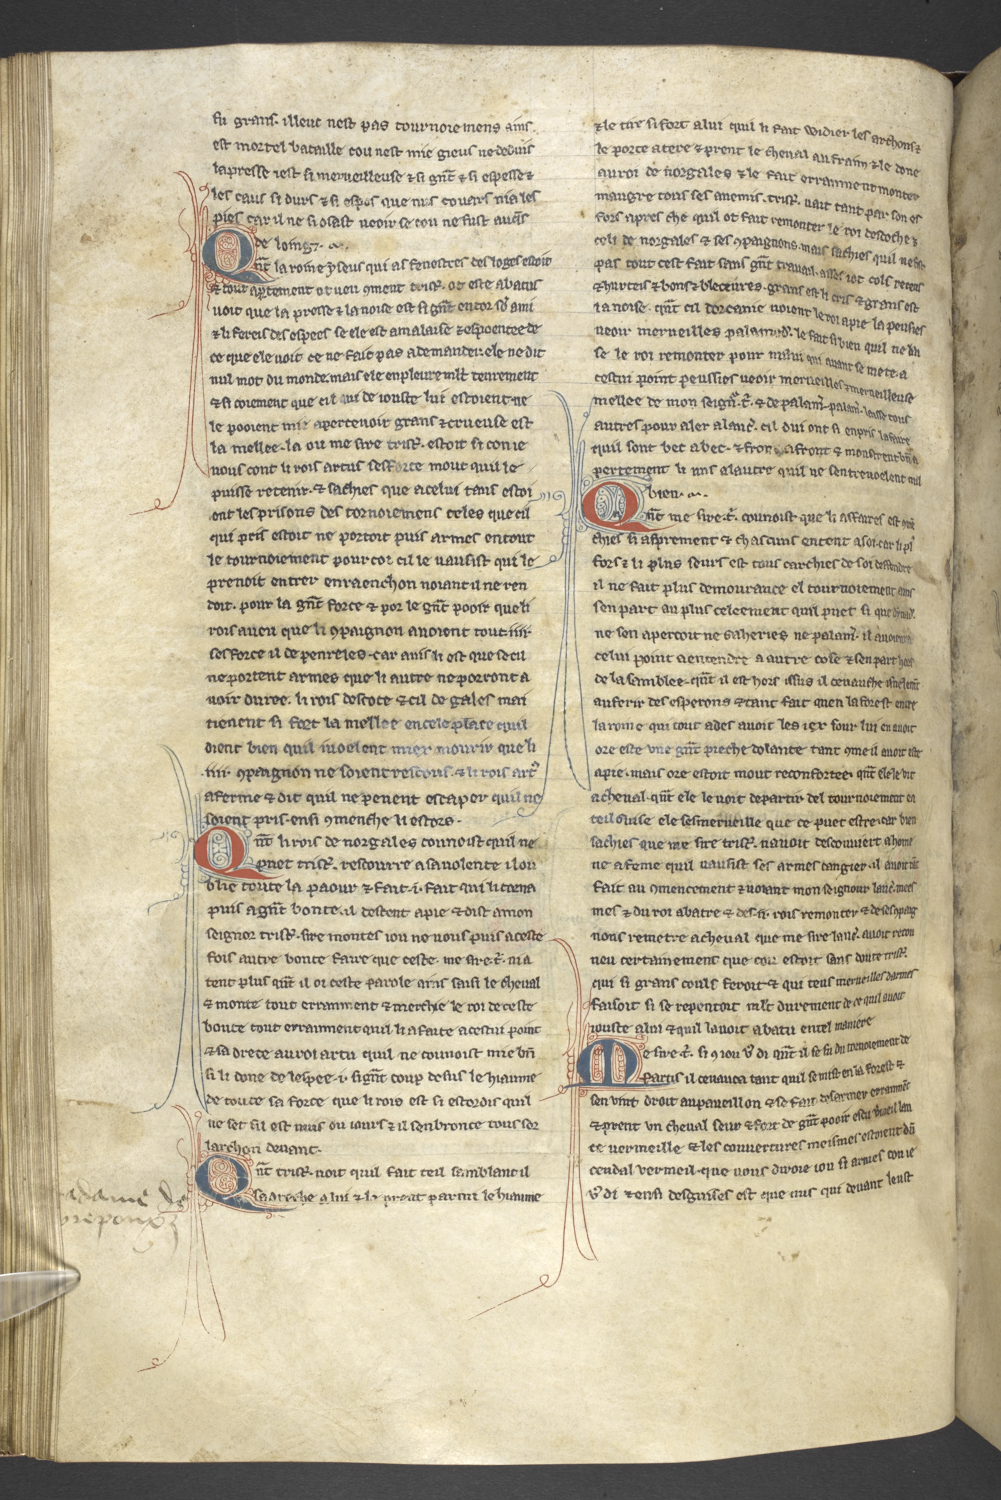 si grans. illeuc nest pas tournoiemens ains
est mortel bataille cou nest mie gieus ne deduis
la presse iest si merveilleuse & si gñt & si espesse &
les caus si durs & si espes que nus couars nia les
pies car il ne si osast veoir se cou ne fust
de loing.
Qñt la roine yseus qui as fenestres des loges estoit
& tout apertement ot veu ꝯment trisť. ot este abatus
voit que la presse & la noise est si gñt encor sor ami
& li fereis des espees se ele est amalaise & espoentee de
ce que ele voit ce ne fait pas a demander. ele ne dit
nul mot du monde. mais ele en pleure mlt tenrement
& si coiement que cil qui de iouste lui estoient ne
le pooient mie apercevoir grans & crueuse est
la mellee. la ou me sire trisť. estoit si con ie
vous cont li rois artus sesforce mout quil le
puisse retenir. & sachies que a celui tans estoi
ent les prisons des tornoiemens teles que cil
qui pris estoit ne portoit puis armes en tout
le tournoiement pour cor cil le vausist qui le
prenoit entrer en raenchon noiant il ne ren
doit. pour la gñt force & por le gñt pooir que li
rois a veu que li ꝯpaignon avoient tout .iiii.
sesforce il de penre les. car avis li est que se cil
ne portent armes que li autre ne porront a
voir duree. li rois descoce & cil de gales mai
tienent si fort la mellee en cele place quil
dient bien quil iuoelent mier mourir que li
.iiii. ꝯpaignon ne soient rescous. & li rois art
aferme & dit quil ne penent escaper quil ne
soient pris. ensi ꝯmenche li estors.
Qñt li rois de norgales connoist quil ne
puet trisť. rescourre a sa volente il ou
blie toute la paour & fait .i. fait qui li torna
puis a gñt bonte. il descent a pie & dist a mon
seignor trisť. sire montes iou ne vous puis a ceste
fois autre bonte faire que ceste. me sire .ť. nia
tent plus qñt il oi ceste parole ains saisi le cheval
& monte tout erranment & merchie le roi de ceste
bonte tout erranment quil li a faite a cestui point
& sa drece au roi artu quil ne counoist mie bñ
si li done de lespee .i. si gñt coup desus le hiaume
de toute sa force que li rois est si estordis quil
ne set sil est nuis ou iours & il senbronce tous sor
larchon devant.
Qñt trisť. voit quil fait teil samblant il
sa proche a lui & li prent parmi le hiaume
& le tire si fort a lui quil li fait widier les archons &
le porte a tere & prent le cheval au frain & le done
au roi de norgales & le fait erranment monter
maugre tous ses anemis. trisť. vait tant par son es
fors apres che quil ot fait remonter le roi descoche &
celi de norgales & ses ꝯpaignons. mais sachies quil ne fu
pas tout cest fait sans gñt travail. asses iot cols receus
& hurteis & bons & bleceures. grans est li cris & grans est
la noise. qñt cil dorcanie voient le roi a pie la peussies
veoir merveilles palamď. le fait si bien quil ne
se le roi remonter pour nului qui avant se mete a
cestui point peussies veoir merveilles & merveilleuse
mellee de mon seignʳ .ť. & de palam. palam. laisse tous
autres pour aler a lanc. cil dui ont si enpris lafaire
quil sont bec a bec. & front a front & monstrent bñ a
pertement li uns a lautre quil ne sentrevoelent nul
bien.
Qñt me sire .ť. counoist que li affaires est
chies si asprement & chascuns entent a soi. car li
fors & li plus seurs est tous carchies de soi deffendre
il ne fait plus demourance el tournoiement ains
sen part au plus celeement quil puet si que
ne sen apercoit ne gaheries ne palam. il
celui point a entendre a autre cose & sen part hors
de la samblee. qñt il est hors issus il cevauche isnelemt
au ferir des esperons & tant fait quen la forest entre
la roine qui tout ades avoit les iex sour lui en avoit
ore este une gñt pieche dolante tant ꝯme il avoit
a pie. mais ore estoit mout reconfortee. qñt ele le vit
a cheval. qñt ele le voit departir del tournoiement en
teil guise ele sesmerveille que ce puet estre. car bien
sachies que me sire trisť. navoit descouvert a home
ne a feme quil vausist ses armes cangier. il
fait au ꝯmencement & voiant mon seignour lanc.
mes & du roi abatre & des .ii. rois remonter & de ses ꝯpaig
nons remetre a cheval que me sire lanc. avoit recon
neu certainement que cou estoit sans doute trisť.
qui si grans couls feroit & qui teus merveilles darmes
faisoit si se repentoit mlt durement de ce quil avoit
iouste a lui & quil lavoit abatu en tel maniere
Me sire .ť. si ꝯ iou vꝰ di qñt il se fu du tornoiement de
partis il cevauca tant quil se mist en la forest &
sen vint droit au paveillon & se fait desarmer erranment
& prent un cheval seur & fort de gñt pooir
ce vermeille & les couvertures meismes estoient dũ
cendal vermeil. que vous diroie iou si armes con ie
vꝰ di & ensi desguises est que nus qui devant leust